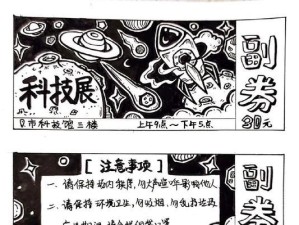 科技展
副券
市科技馆三楼
上午9点～下午5点
30元
[注意事项]
一、请保持馆内秩序,勿大声喧哗影响他人
二、请保持环境卫生,勿吸烟,勿乱扔垃圾
副券